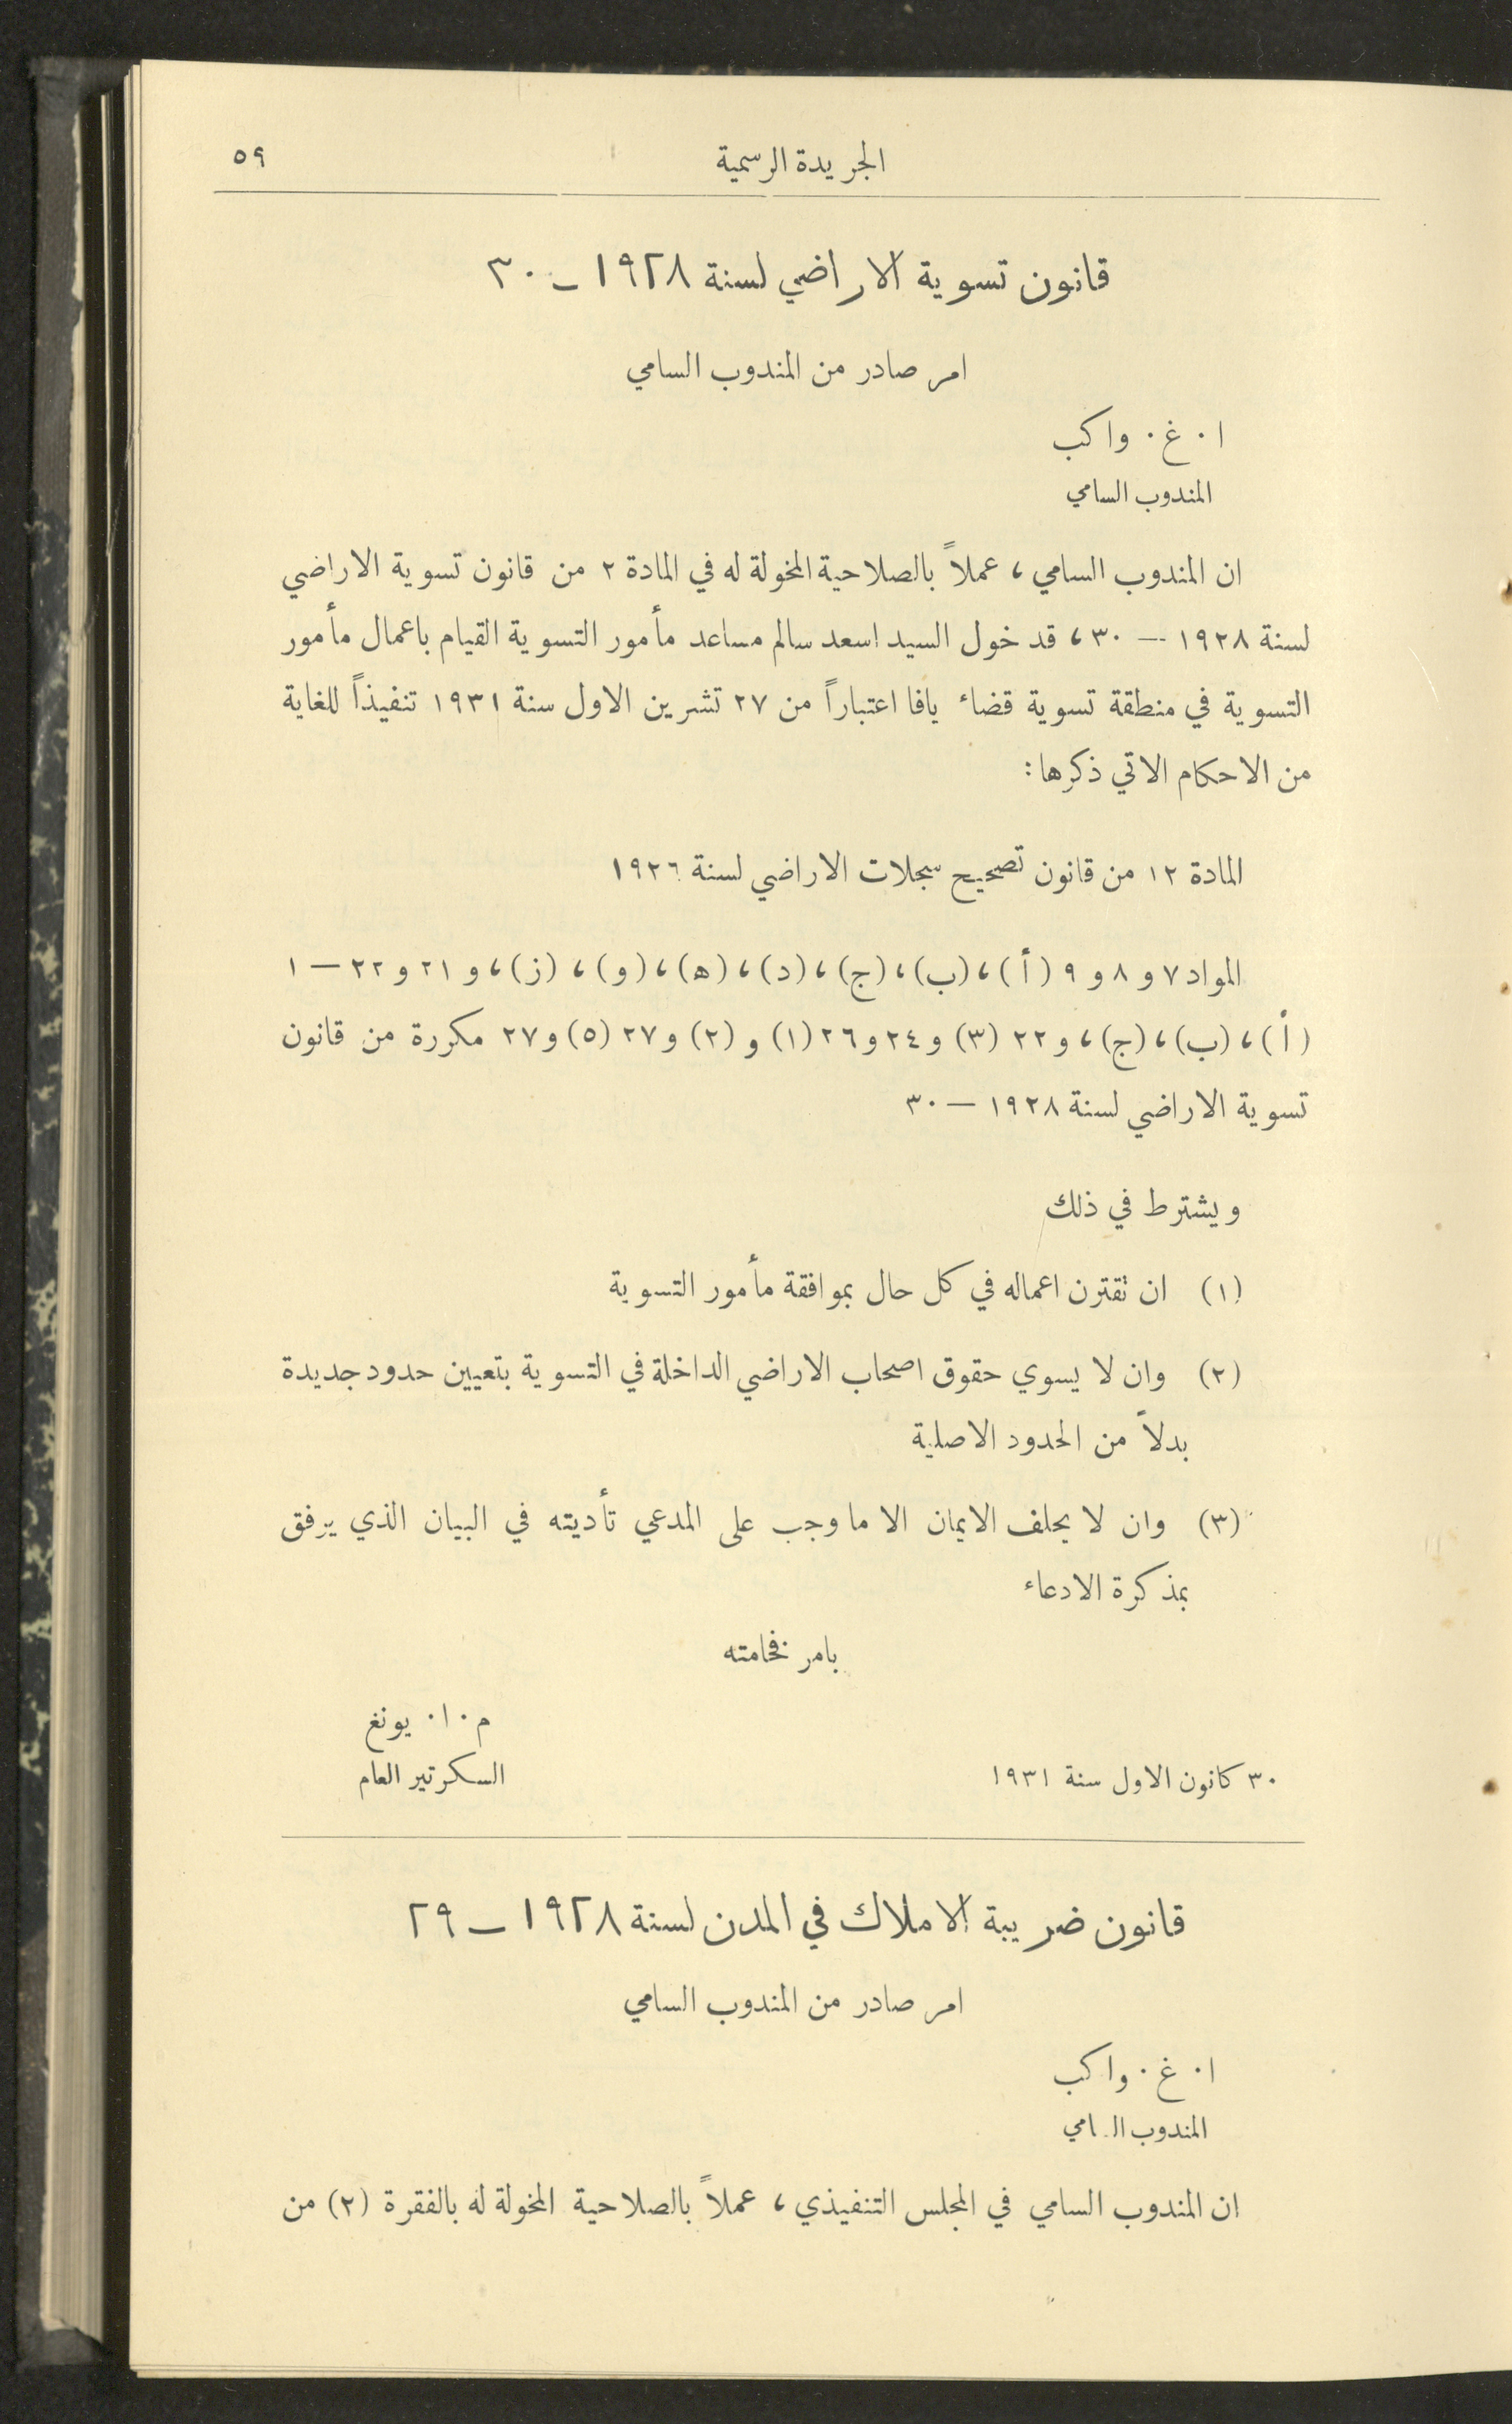 الجريدة الرسمية
٥٩
قانون تسوية الاراضي لسنة ١٩٢٨ – ٣٠
امر صادر من المندوب السامي
ا. غ. واكب
المندوب السامي
ان المندوب السامي، عملاً بالصلاحية المخولة له في المادة ٢ من قانون تسوية الاراضي
لسنة ١٩٢٨ – ٣٠، قد خول السيد اسعد سالم مساعد مأمور التسوية القيام باعمال مأمور
التسوية في منطقة تسوية قضاء يافا اعتباراً من ٢٧ تشرين الاول سنة ١٩٣١ تنفيذاً للغاية
من الاحكام الاتي ذكرها:
المادة ١٢ من قانون تصحيح سجلات الاراضي لسنة ١٩٢٦
المواد ٧ و ٨ و ٩ (أ)، (ب)، (ج)، (د)، (ه)، (و)، (ز)، و ٢١ و ٢٢ – ١
(أ)، (ب)، (ج)، و ٢٢ (٣) و ٢٤ و ٢٦ (١) و (٢) و ٢٧ (٥) و ٢٧ مكررة من قانون
تسوية الاراضي لسنة ١٩٢٨ – ٣٠
ويشترط في ذلك
(١) ان تقترن اعماله في كل حال بموافقة مأمور التسوية
(٢) وان لا يسوي حقوق اصحاب الاراضي الداخلة في التسوية بتعيين حدود جديدة
بدلاً من الحدود الاصلية
(٣) وان لا يحلف الايمان الا ما وجب على المدعي تأديته في البيان الذي يرفق
بمذكرة الادعاء
بامر فخامته
م. ا. يونغ
٣٠ كانون الاول سنة ١٩٣١
السكرتير العام
قانون ضريبة الاملاك في المدن لسنة ١٩٢٨ – ٢٩
امر صادر من المندوب السامي
ا. غ. واكب
المندوب السامي
ان المندوب السامي في المجلس التنفيذي، عملاً بالصلاحية المخولة له بالفقرة (٢) من